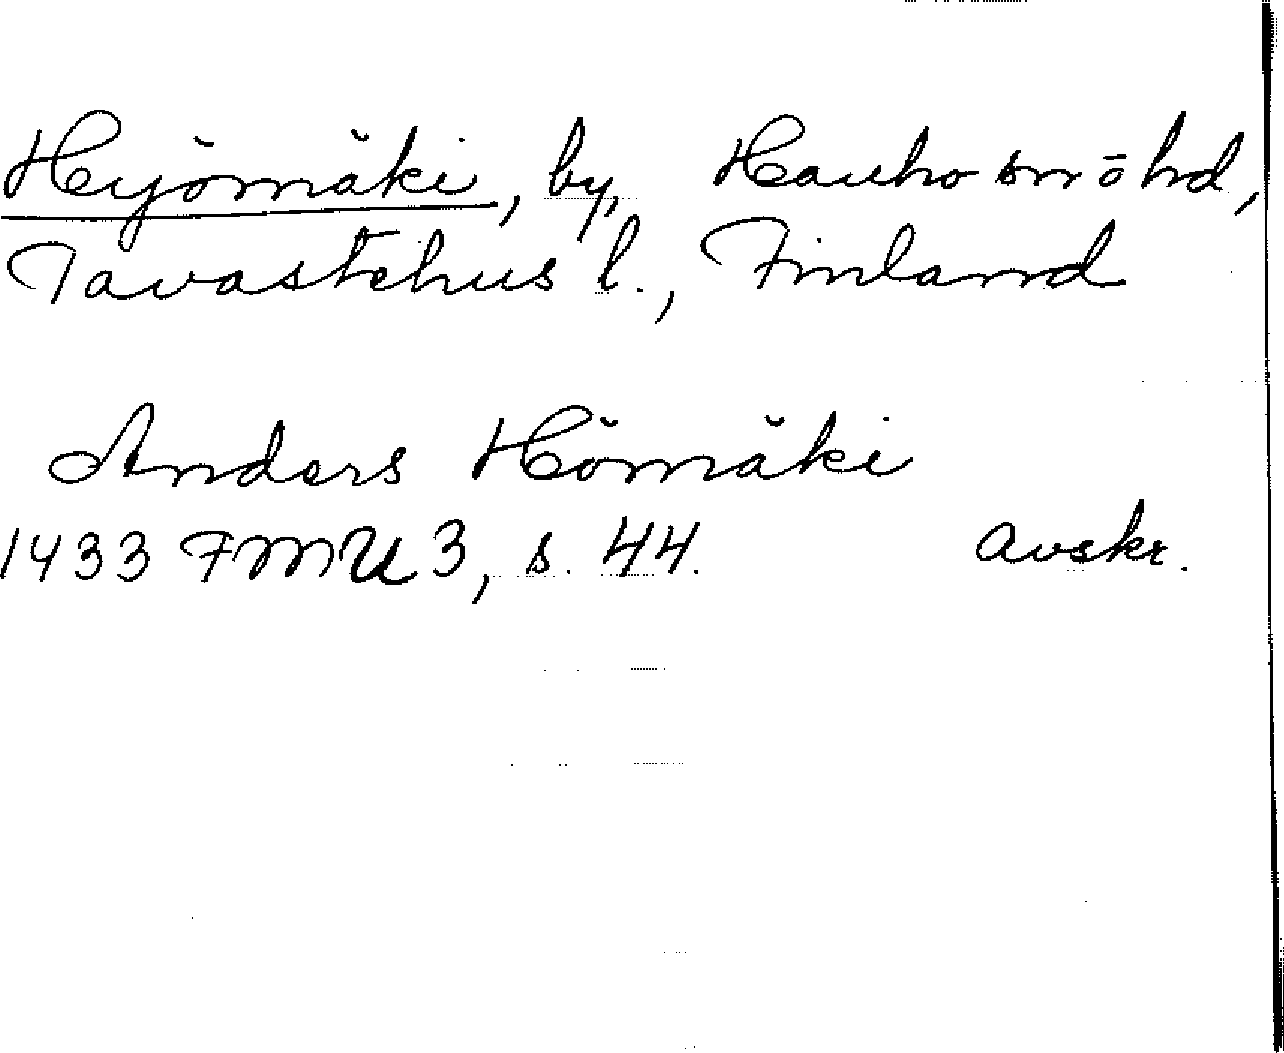 Hyömäki, by, Hauho sn o hd,
Tavastehus l., Finland
Anders Hömäki
1433 FMU 3, s. 44. Avskr.